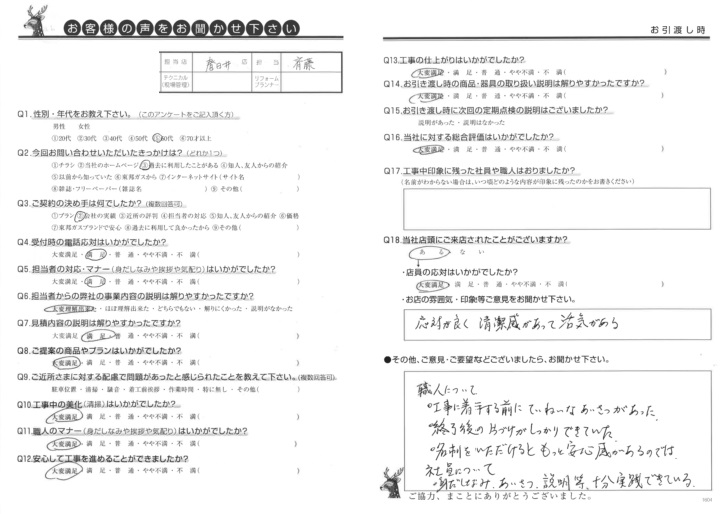 お客様の声をお聞かせ下さい
担当店 春日井 店 担当 斉藤
テクニカル(現場管理) リフォームプランナー
Q1.性別・年代をお教え下さい。(このアンケートをご記入頂く方)
男性 女性
①20代 ②30代 ③40代 ④50代 ⑤60代 ⑥70才以上
Q2.今回お問い合わせいただいたきっかけは?(どれか1つ)
①チラシ ②当社のホームページ ③過去に利用したことがある ④知人、友人からの紹介
⑤以前から知っていた ⑥東邦ガスから ⑦インターネットサイト(サイト名 )
⑧雑誌・フリーペーパー(雑誌名 ) ⑨その他( )
Q3.ご契約の決め手は何でしたか?(複数回答可)
①プラン ②会社の実績 ③近所の評判 ④担当者の対応 ⑤知人、友人からの紹介 ⑥価格
⑦東邦ガスブランドで安心 ⑧過去に利用して良かったから ⑨その他( )
Q4.受付時の電話応対はいかがでしたか?
大変満足・満 足・普 通・やや不満・不 満( )
Q5.担当者の対応・マナー(身だしなみや挨拶や気配り)はいかがでしたか?
大変満足・満 足・普 通・やや不満・不 満( )
Q6.担当者からの弊社の事業内容の説明は解りやすかったですか?
大変理解出来た・ほぼ理解出来た・どちらでもない・解りにくかった・説明がなかった
Q7.見積内容の説明は解りやすかったですか?
大変満足・満 足・普 通・やや不満・不 満( )
Q8.ご提案の商品やプランはいかがでしたか?
大変満足・満 足・普 通・やや不満・不 満( )
Q9.ご近所さまに対する配慮で問題があったと感じられたことを教えて下さい。(複数回答可)
駐車位置・清掃・騒音・着工前挨拶・作業時間・特に無し・その他( )
Q10.工事中の美化(清掃)はいかがでしたか?
大変満足・満 足・普 通・やや不満・不 満( )
Q11.職人のマナー(身だしなみや挨拶や気配り)はいかがでしたか?
大変満足・満 足・普 通・やや不満・不 満( )
Q12.安心して工事を進めることができましたか?
大変満足・満 足・普 通・やや不満・不 満( )
お引渡し時
Q13.工事の仕上がりはいかがでしたか?
大変満足・満 足・普 通・やや不満・不 満( )
Q14.お引き渡し時の商品・器具の取り扱い説明は解りやすかったですか?
大変満足・満 足・普 通・やや不満・不 満( )
Q15.お引き渡し時に次回の定期点検の説明はございましたか?
説明があった・説明はなかった
Q16.当社に対する総合評価はいかがでしたか?
大変満足・満 足・普 通・やや不満・不 満( )
Q17.工事中印象に残った社員や職人はおりましたか?
(名前がわからない場合は、いつ頃どのような内容が印象に残ったのかをお書きください)
Q18.当社店頭にご来店されたことがございますか?
ある な い
・店員の応対はいかがでしたか?
大変満足・満 足・普 通・やや不満・不 満( )
・お店の雰囲気・印象等ご意見をお聞かせ下さい。
応対が良く 清潔感があって活気がある
●その他、ご意見・ご要望などございましたら、お聞かせ下さい。
職人について
・工事に着手する前に ていねいな あいさつがあった.
・終了後の 片づけがしっかりできていた.
・名刺をいただけると もっと安心感があるのでは.
社員について
・身だしなみ、あいさつ、説明等、十分実践できている.
ご協力、まことにありがとうございました。